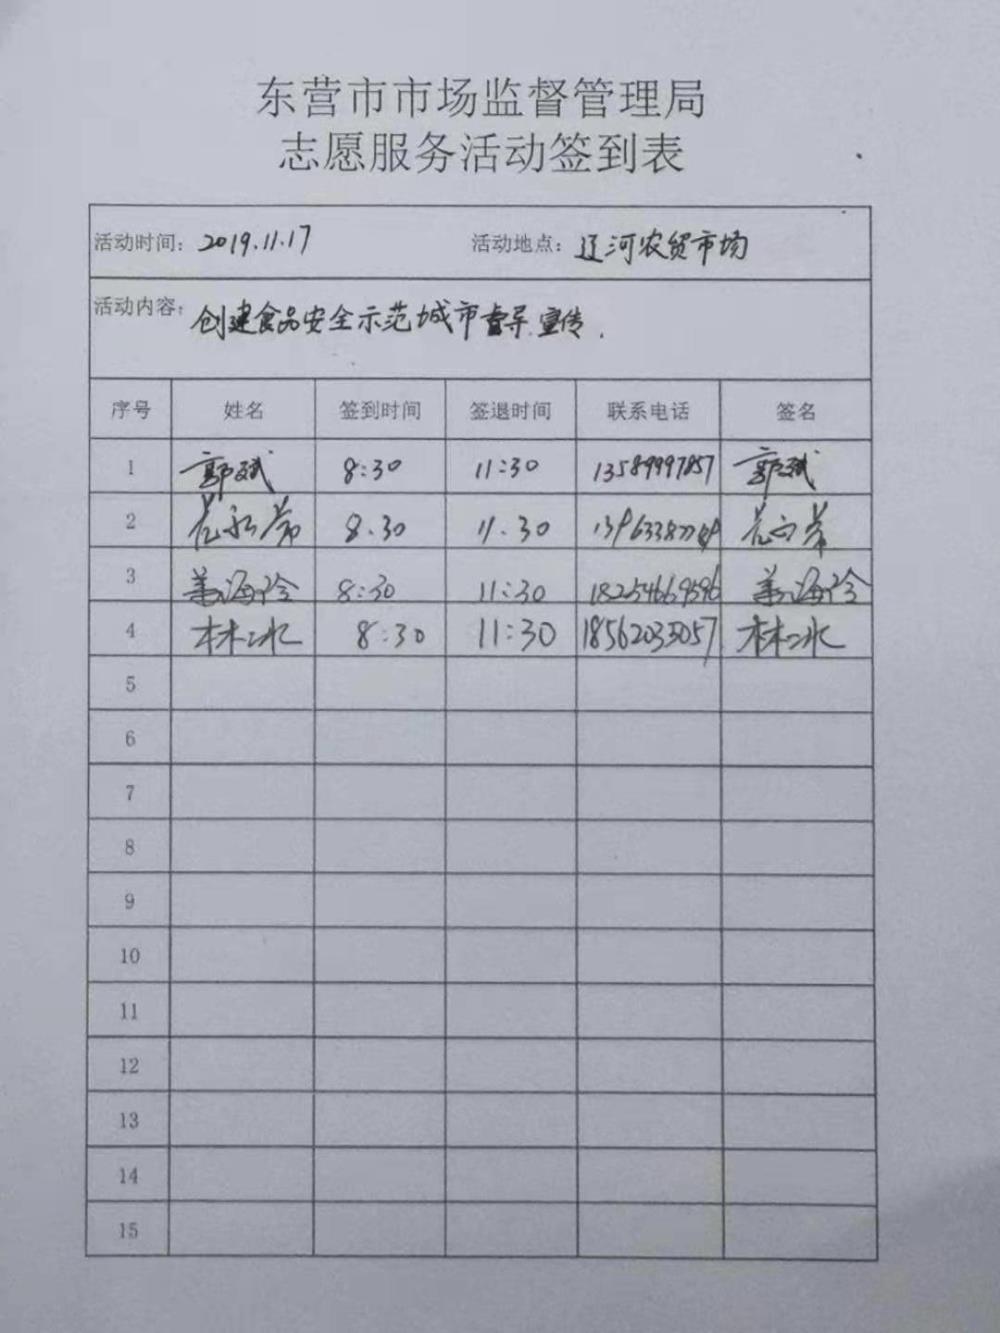 东营市市场监督管理局
志愿服务活动签到表
活动时间：2019.11.17 活动地点：辽河农贸市场
活动内容：创建食品安全示范城市督导.宣传.
序号 姓名 签到时间 签退时间 联系电话 签名
1 郭斌 8:30 11:30 13589997857 郭斌
2 8.30 11.30
3 姜海玲 8:30 11:30 18254669596 姜海玲
4 林冰 8:30 11:30 18562033057 林冰
5
6
7
8
9
10
11
12
13
14
15